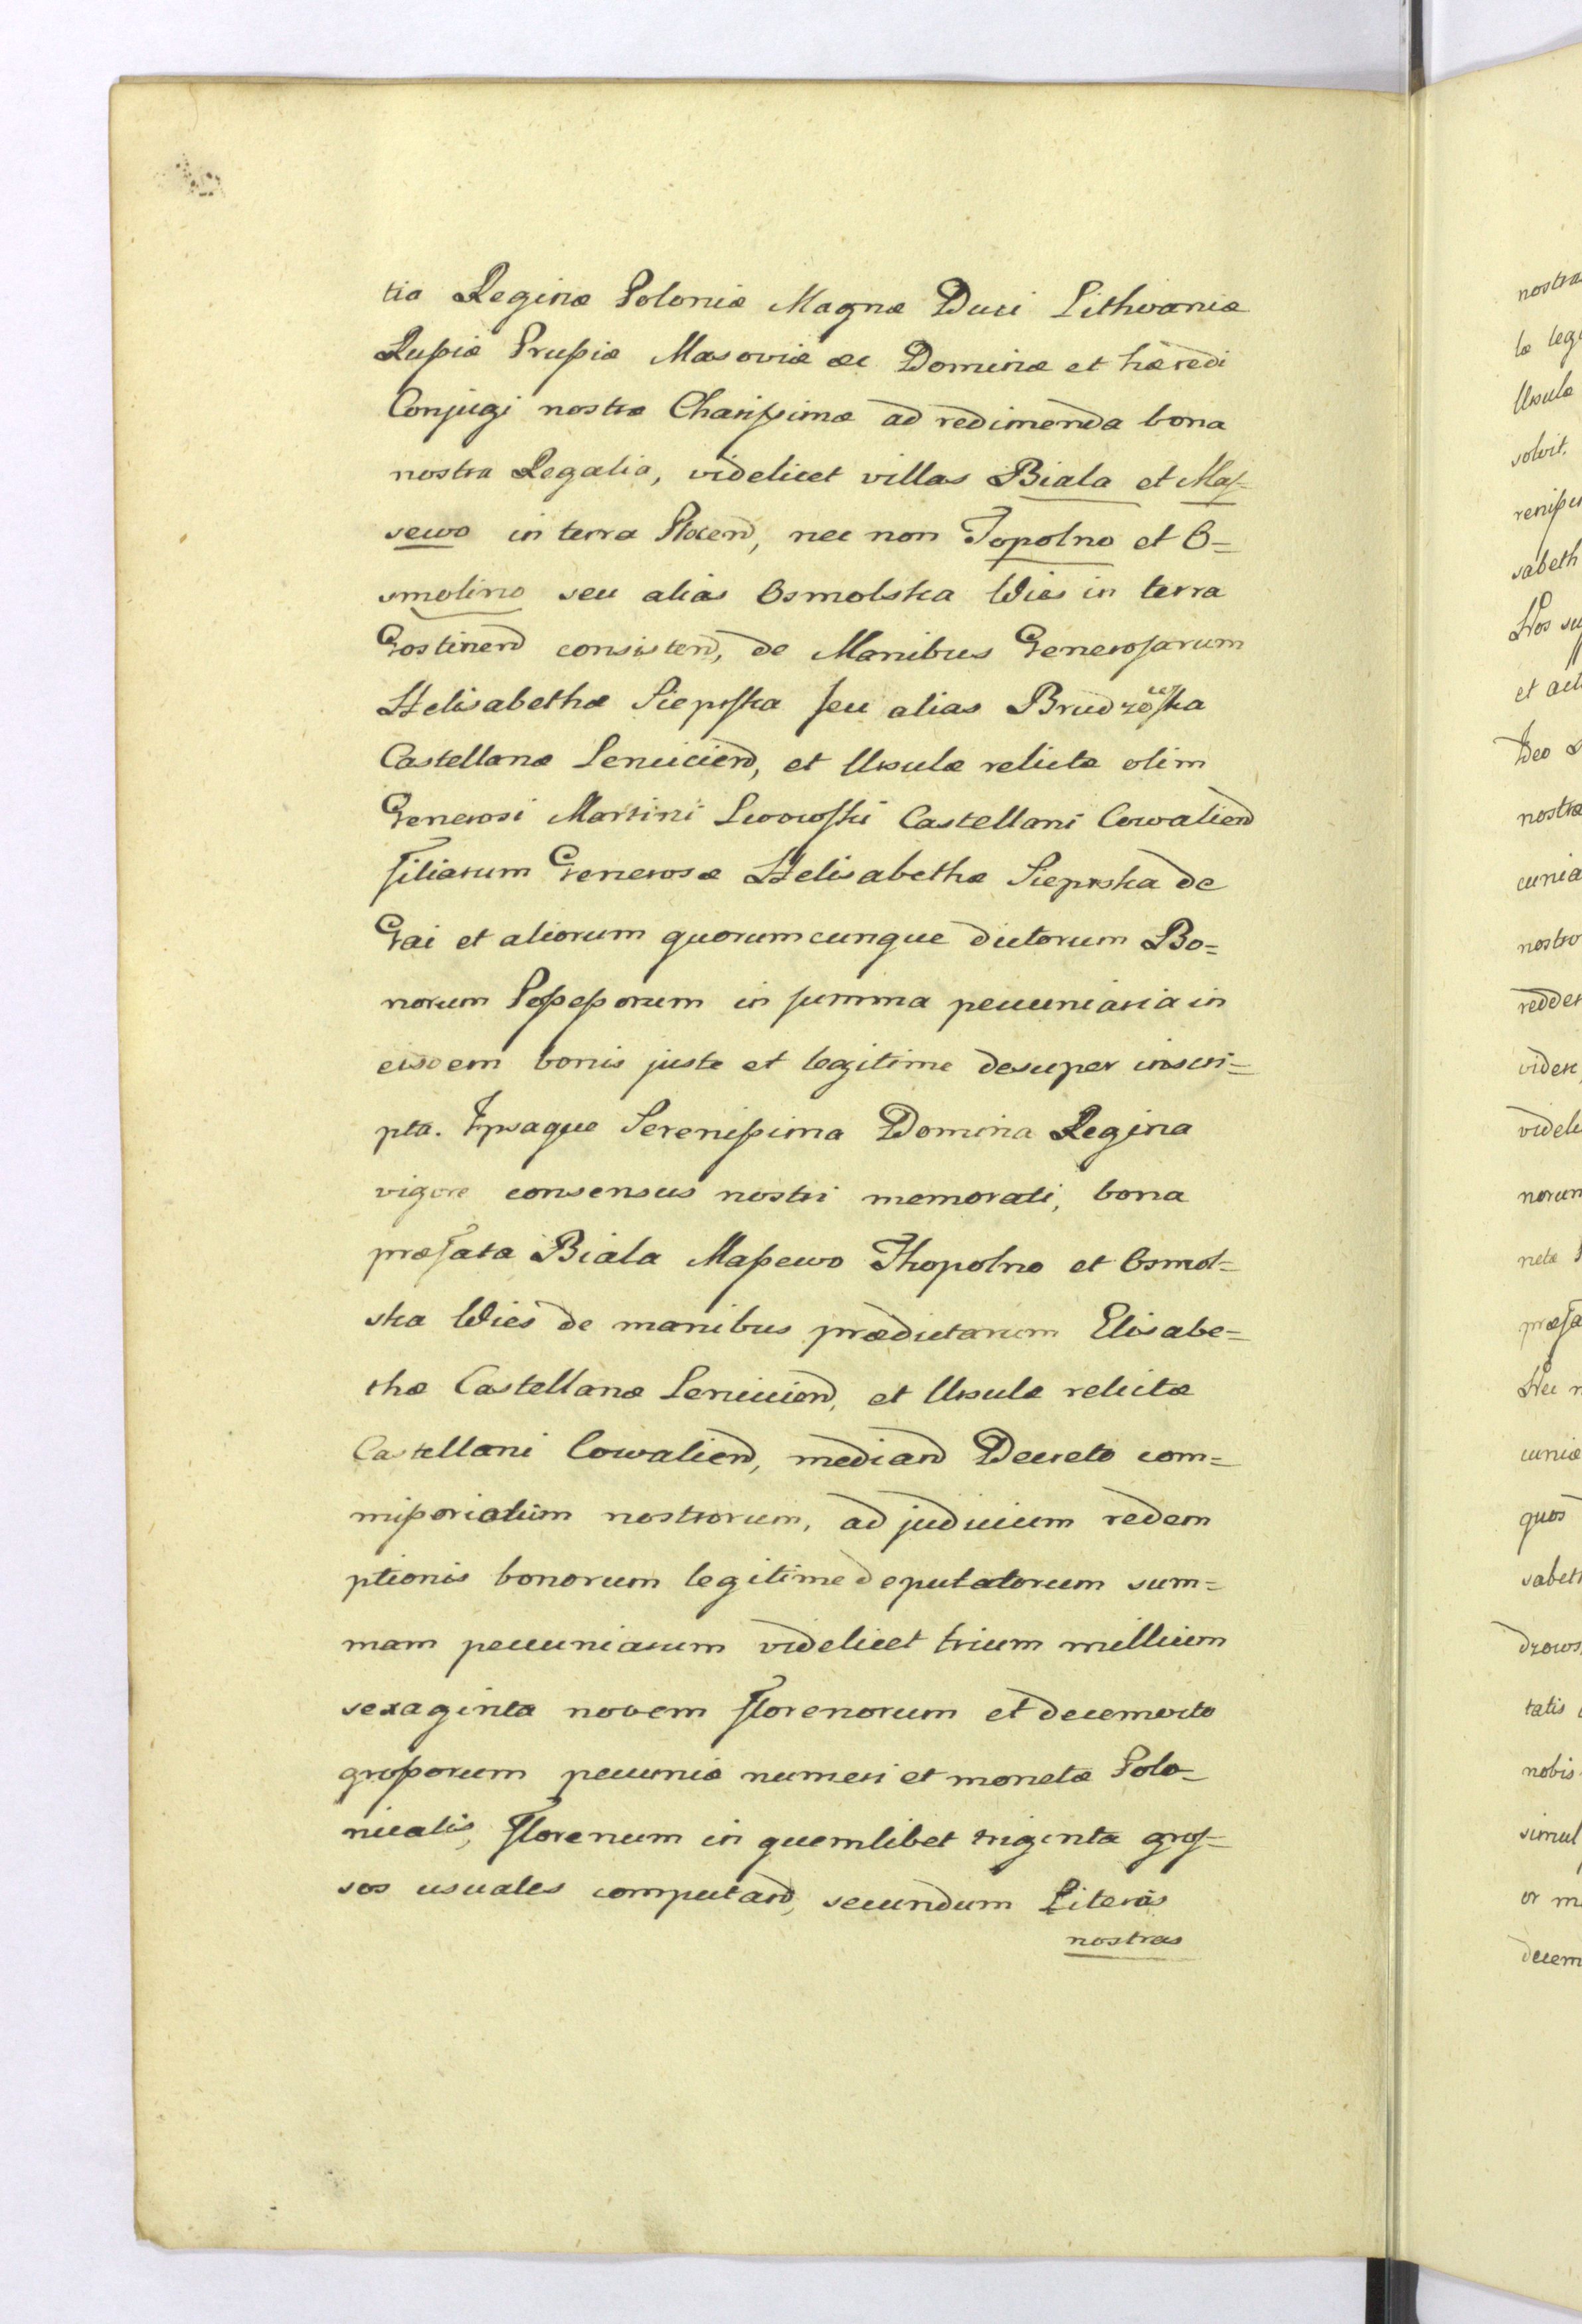 tia Reginæ Poloniæ Magnæ Duci Lithvaniæ
Rußiæ Prußiæ Masoviæ æc Dominæ et hæredi
Conjugi nostræ Charißimæ ad redimenda bona
nostra Regalia, videlicet villas Biala et Maſ-
sewo in terra Plocen, nec non Topolno et O=
smolino seu alias Osmolska Wies in terra
Gostinen consisten, de Manibus Generoſarum
Helisabethæ Sieprſka ſeu alias Brudzewſka
Castellanæ Lenicien, et Ursulæ relictæ olim
Generosi Martini Lwowſki Castellani Cowalien
filiarum Generosæ Helisabethæ Sieprska de
Gai et aliorum quorumcunque dictorum Bo=
norum Poßeßorum in ſumma pecuniaria in
eisdem bonis juste et legitime desuper inscri=
pta. Ipsaque Serenißima Domina Regina
vigore consensus nostri memorati, bona
præfata Biala Maßewo Thopolno et Osmol=
ska Wies de manibus prædictarum Elisabe=
thæ Castellanæ Lenicien, et Ursulæ relictæ
Castellani Cowalien, median Decreto com=
mißoriatum nostrorum, ad judicium redem
ptionis bonorum legitime deputatorum sum=
mam pecuniarum videlicet trium millium
sexaginta novem florenorum et decemocto
großorum pecuniæ numeri et monetæ Polo-
nicalis, florenum in quemlibet triginta groſ-
sos usuales computand, secundum Literas
nostras
nostræ
læ leg
Ursulæ
solvit.
sabeth
Nos su
et act
Deo
nostræ
cunia
nostro
redder
videre
videli
norum
netæ
præfa
Nec n
cuniæ
quos
sabeth
drows
tatis
nobis
simul
or m
decem